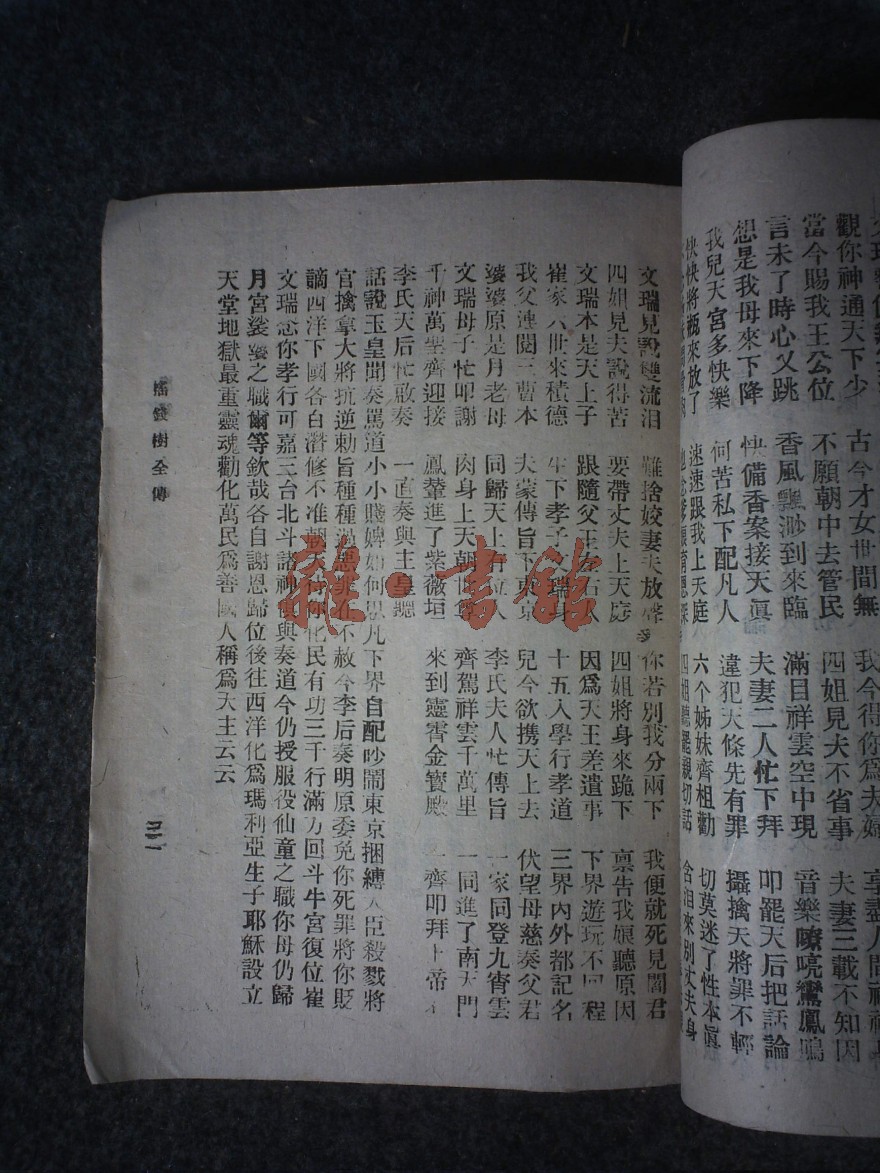 觀你神通天下少 古今才女世間無 我今得你為夫婦
當今賜我王公位 不願朝中去管民 四姐見夫不省事 夫妻三載不知因
言未了時心又跳 香風飄渺到來臨 滿目祥雲空中現 音樂嘹喨鸞鳳鳴
想是我母來下降 快備香案接天眞 夫妻二人忙下拜 叩罷天后把話論
我兒天宮多快樂 何苦私下配凡人 違犯大條先有罪 攝擒天將罪不輕
快快將 來放了 速速跟我上天庭 六个姊妹齊相勸 切莫迷了性本眞
四姐聽罷親切話 含泪來別丈夫身
文瑞見說雙流泪 難捨姣妻夫放聲 你若別我分兩下 我便就死見閻君
四姐見夫說得苦 要帶丈夫上天庭 四姐將身來跪下 禀告我娘聽原因
文瑞本是天上子 跟隨父王 因為天王差遣事 下界遊玩不回程
崔家八世來積德 生下孝子 瑞身 十五入學行孝道 三界內外都記名
我父連閱三曹本 夫蒙傳旨下東京 兒今欲携天上去 伏望母慈奏父君
婆婆原是月老母 同歸天上 李氏夫人忙傳旨 一家同登九霄雲
文瑞母子忙叩謝 肉身上天朝 齊駕祥雲千萬里 一同進了南天門
千神萬聖齊迎接 鳳輦進了紫薇垣 來到靈霄金寶殿 齊叩拜上帝
李氏天后忙啟奏 一直奏與主皇聽
話說玉皇聞奏罵道小小賤婢如何思凡下界自配吵鬧東京捆縛大臣殺戮將
官擒拿大將抗逆勅旨種種 惡罪在不赦今李后奏明原委免你死罪將你貶
謫西洋下國各自潛修不准朝天待你化民有功三千行滿方回斗牛宮復位崔
文瑞念你孝行可嘉三台北斗諸神俱與奏道今仍授服役仙童之職你母仍歸
月宮婆婆之職爾等欽哉各自謝恩歸位後往西洋化為瑪利亞生子耶穌設立
天堂地獄最重靈魂勸化萬民為善國人稱為大主云云
搖錢樹全傳
雜·書館